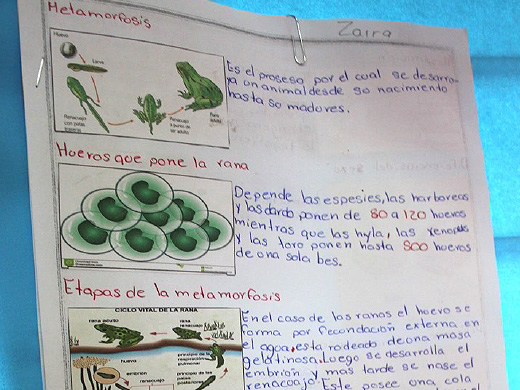 Metamorfosis
Zaira
Huevo
Larva
Renacuajo con patas traseras
Renacuajo a punto de ser adulto
Rana adulta
Es el proseso por el cual se desarro-
ya un animal desde so nacimiento
hasta so madores.
Huevos que pone la rana
Depende las espesies, las harboreas
y las dardo ponen de 80 a 120 huevos
mientras que las hyla, las
y las toro ponen hasta 800 huevos
de ona sola bes.
Etapas de la metamorfosis
CICLO VITAL DE LA RANA
rana adulto
rana
renacuajo
huevo
embrión
renacuajo
principio de la respiración pulmonar
principio de las patas posteriores
En el caso de las ranas el huevo se
forma por fecondación externa en
el agoa, esta rodeado de ona masa
gelatinosa. Luego se desarrolla el
embrión y mas tarde se nase el
renacoajo. Este posee ona cola